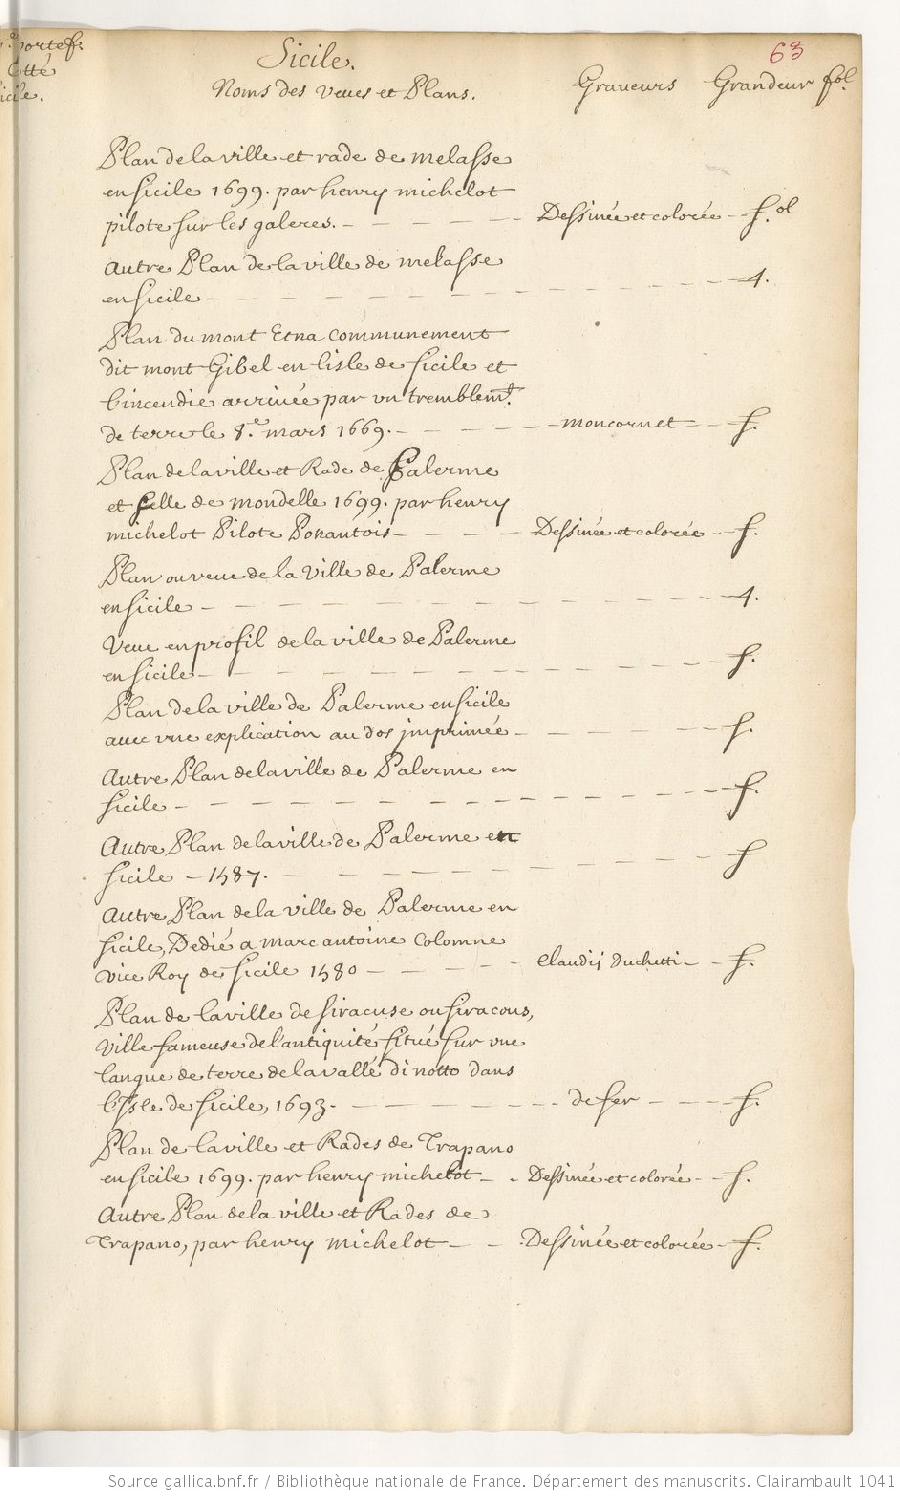 portef.
Cotté
icile.
63
Sicile.
Noms des veues et Plans. Graveurs Grandeur fol.
Plan de la ville et rade de melasse
en sicile 1699. par henry michelot
pilote sur les galeres. - - - - - Dessinée et colorée - f.ol
Autre Plan de la ville de melasse
en sicile - - - - - - - - 4.
Plan du mont Etna communement
dit mont Gibel en l'isle de sicile et
l'incendie arrivée par un tremblem.t
de terre le 8.e mars 1669. - - - - - moncornet - - f.
Plan de la ville et Rade de Palerme
et Celle de mondelle 1699. par henry
michelot Pilote Ponantois - - - - Dessinée et colorée - f.
Plan ou veue de la Ville de Palerme
en sicile - - - - - - - - 4.
Veue en profil de la ville de Palerme
en sicile - - - - - - - - f.
Plan de la ville de Palerme en sicile
avec une explication au dos jmprimée - - - - - f.
Autre Plan de la ville de Palerme en
sicile - - - - - - - - f.
Autre Plan de la ville de Palerme en
sicile - 1587. - - - - - - - f
Autre Plan de la ville de Palerme en
sicile, Dedié a marc antoine Colomne
vice Roy de sicile 1580 - - - - Claudij duchetti - - f.
Plan de la ville de siracuse ou siracous,
ville fameuse de l'antiquité situé sur une
langue de terre de la vallé di notto dans
l'jsle de sicile, 1693. - - - - - - de fer - - - f.
Plan de la ville et Rades de Trapano
en sicile 1699. par henry michelot - - Dessinée et colorée - - f.
Autre Plan de la ville et Rades de
Trapano, par henry michelot - - Dessinée et colorée - f.
Source gallica.bnf.fr / Bibliothèque nationale de France. Département des manuscrits. Clairambault 1041